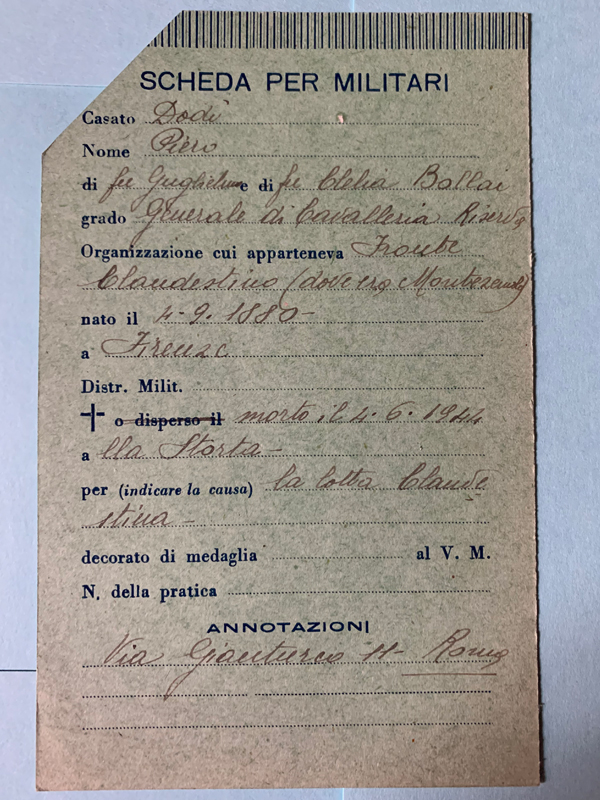 SCHEDA PER MILITARI
Casato Dodi
Nome Piero
di fu Guglielmo e di fu Clelia Ballai
grado Generale di Cavalleria Riserva
Organizzazione cui apparteneva Fronte
Clandestino (dove era Montezemolo)
nato il 4-9-1880-
a Firenze
Distr. Milit.
o disperso il morto il 4.6.1944
a lla Storta-
per (indicare la causa) la lotta Clande
stina-
decorato di medaglia al V. M.
N. della pratica
ANNOTAZIONI
Via Gianturco 11- Roma